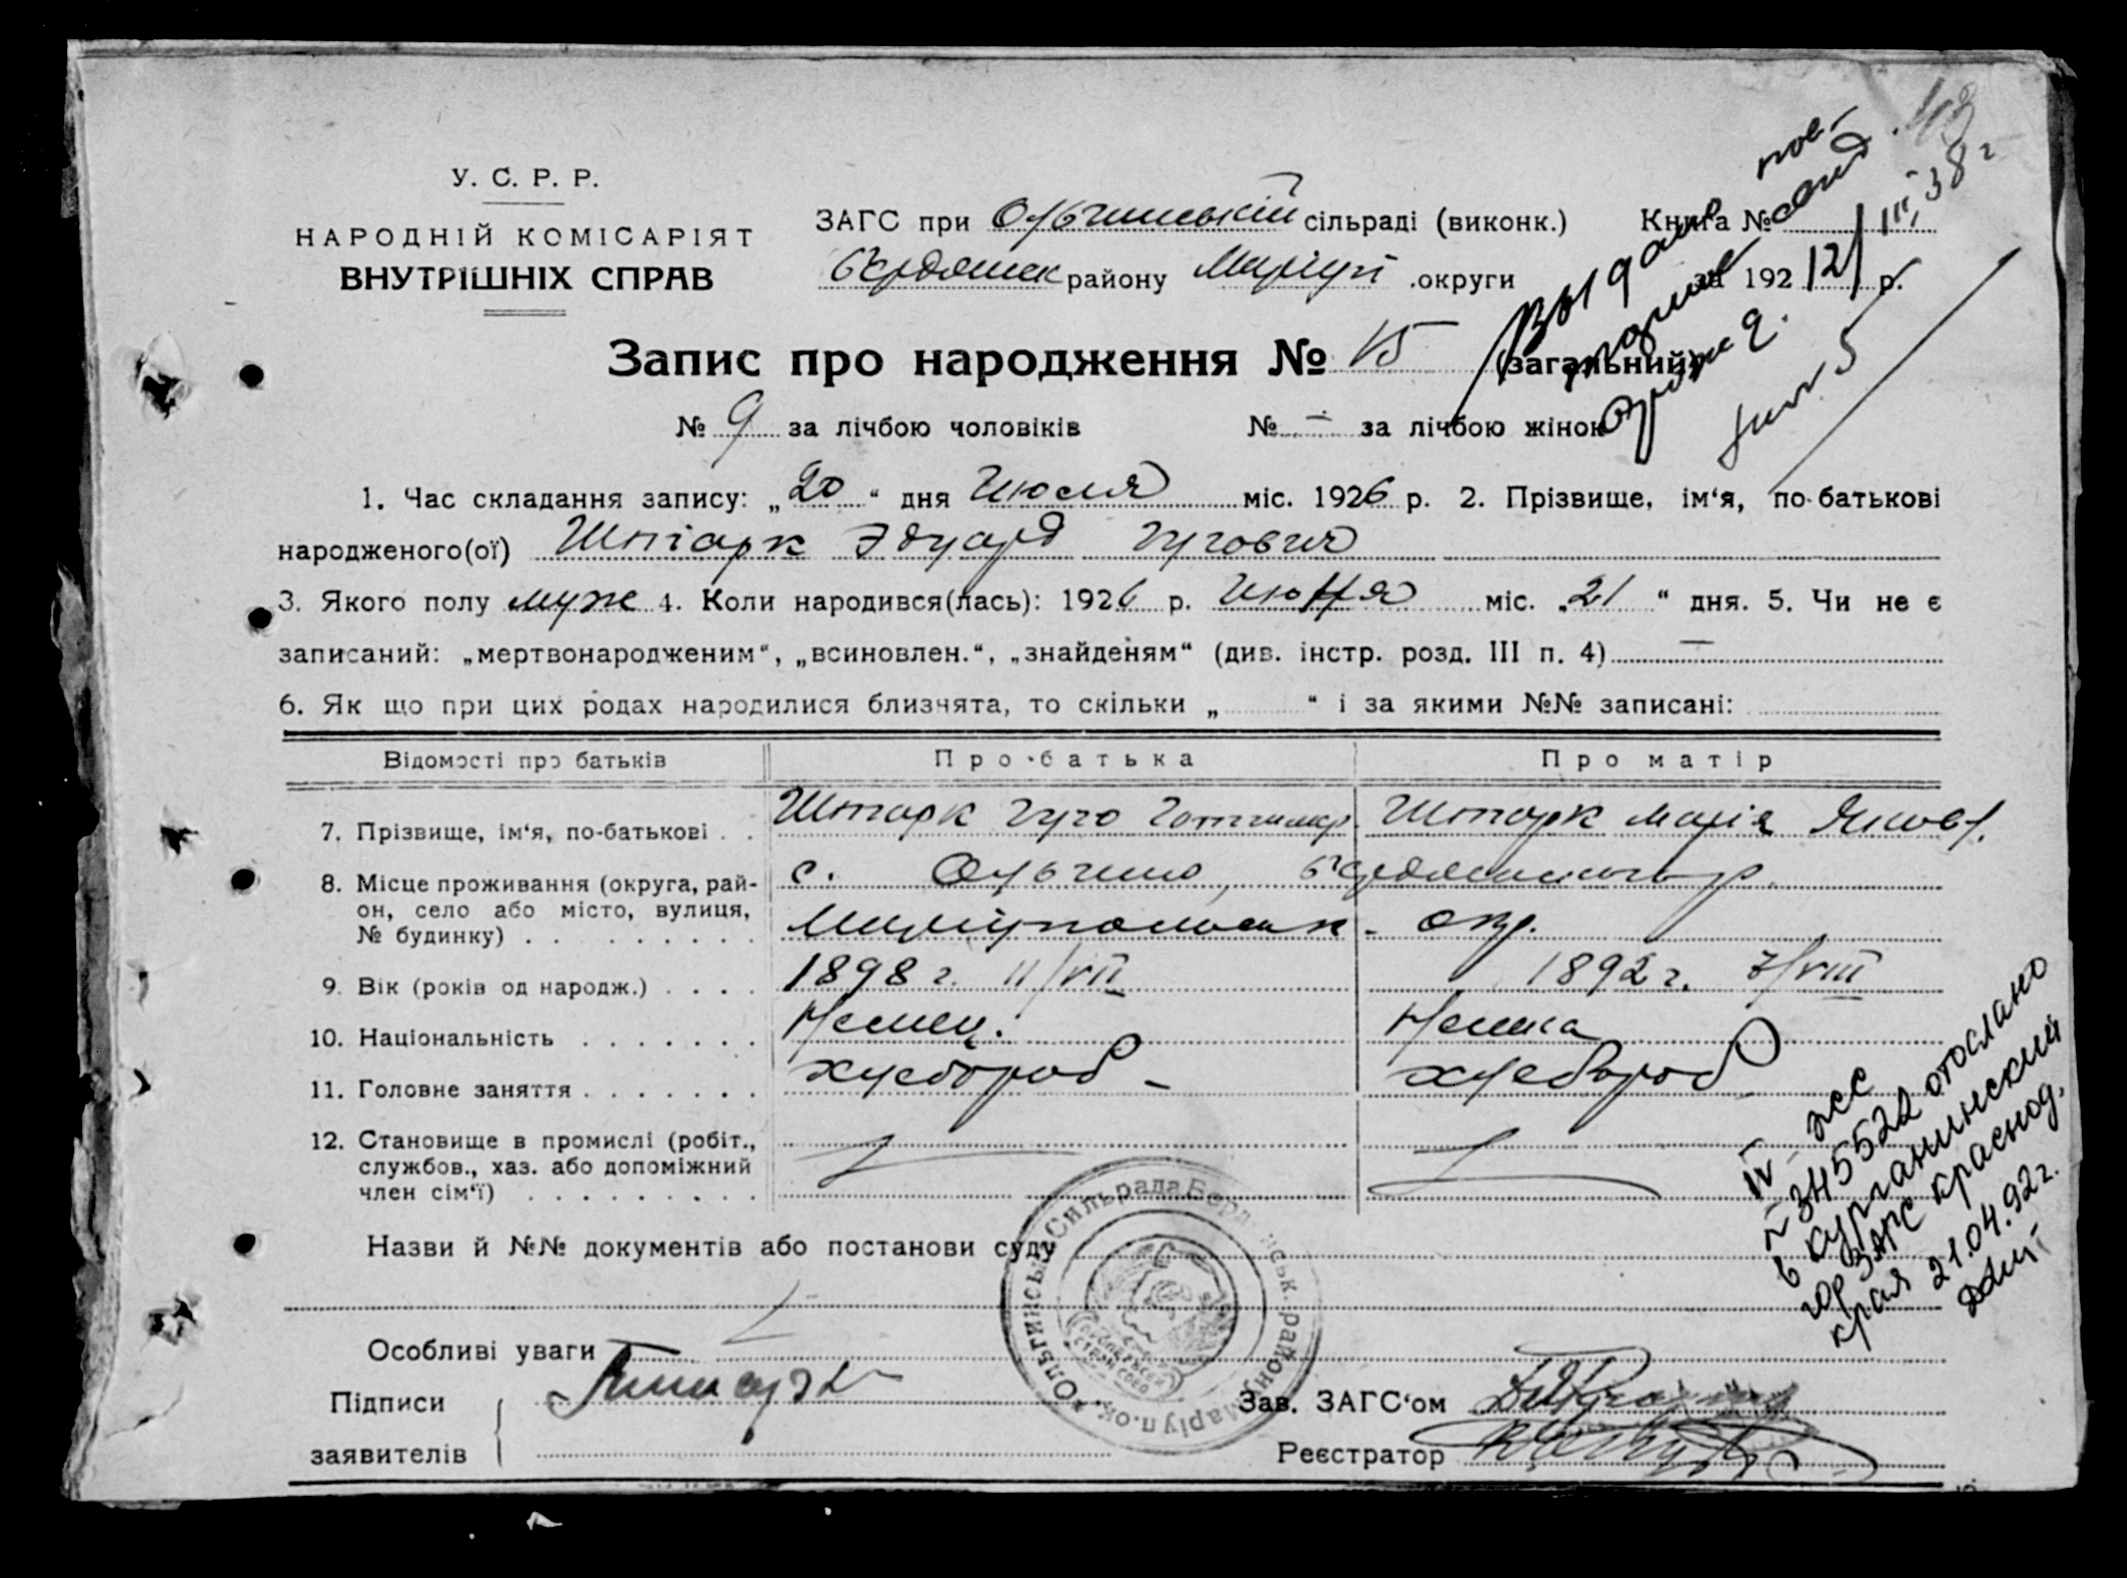 У. С. Р. Р.
НАРОДНІЙ КОМІСАРІЯТ
ВНУТРІШНІХ СПРАВ
ЗАГС при Ольгинській сільраді (виконк.) Книга №
Бердянськ району Маріуп. округи за 192 р.
Запис про народження № 15 (загальний)
№ 9 за лічбою чоловіків № — за лічбою жінок
12/III 38 г
1. Час складання запису: „20“ дня Июля міс. 1926 р. 2. Прізвище, ім‘я, по-батькові
народженого(ої) Штарк Эдуард Гугович
3. Якого полу муж 4. Коли народився(лась): 1926 р. Июня міс. „21“ дня. 5. Чи не є
записаний: „мертвонародженим“, „всиновлен.“, „знайденям“ (див. інстр. розд. III п. 4) —
6. Як що при цих родах народилися близнята, то скільки „ “ і за якими №№ записані:
Відомості про батьків Про батька Про матір
7. Прізвище, ім‘я, по-батькові . . Штарк Гуго Штарк Марія Яковл.
8. Місце проживання (округа, рай-
он, село або місто, вулиця,
№ будинку) . . . . . . . . .
с. Ольгино, Бердянського р.
Маріупольськ. окр.
9. Вік (років од народж.) . . . . 1898 г. 11/VII 1892 г. 7/VIII
10. Національність . . . . . . . Немец. Немка
11. Головне заняття . . . . . . . хлебороб - хлебороб
12. Становище в промислі (робіт.,
службов., хаз. або допоміжний
член сім‘ї) . . . . . . . . .
Назви й №№ документів або постанови суду
Особливі уваги
Підписи
заявителів
Зав. ЗАГС‘ом
Реєстратор
Ольгинська Сильрада Бердянськ. району Маріуп. ок.
№ 345522 отослано
в Курганинский
гор ЗАГС Краснод.
края 21.04.92 г.